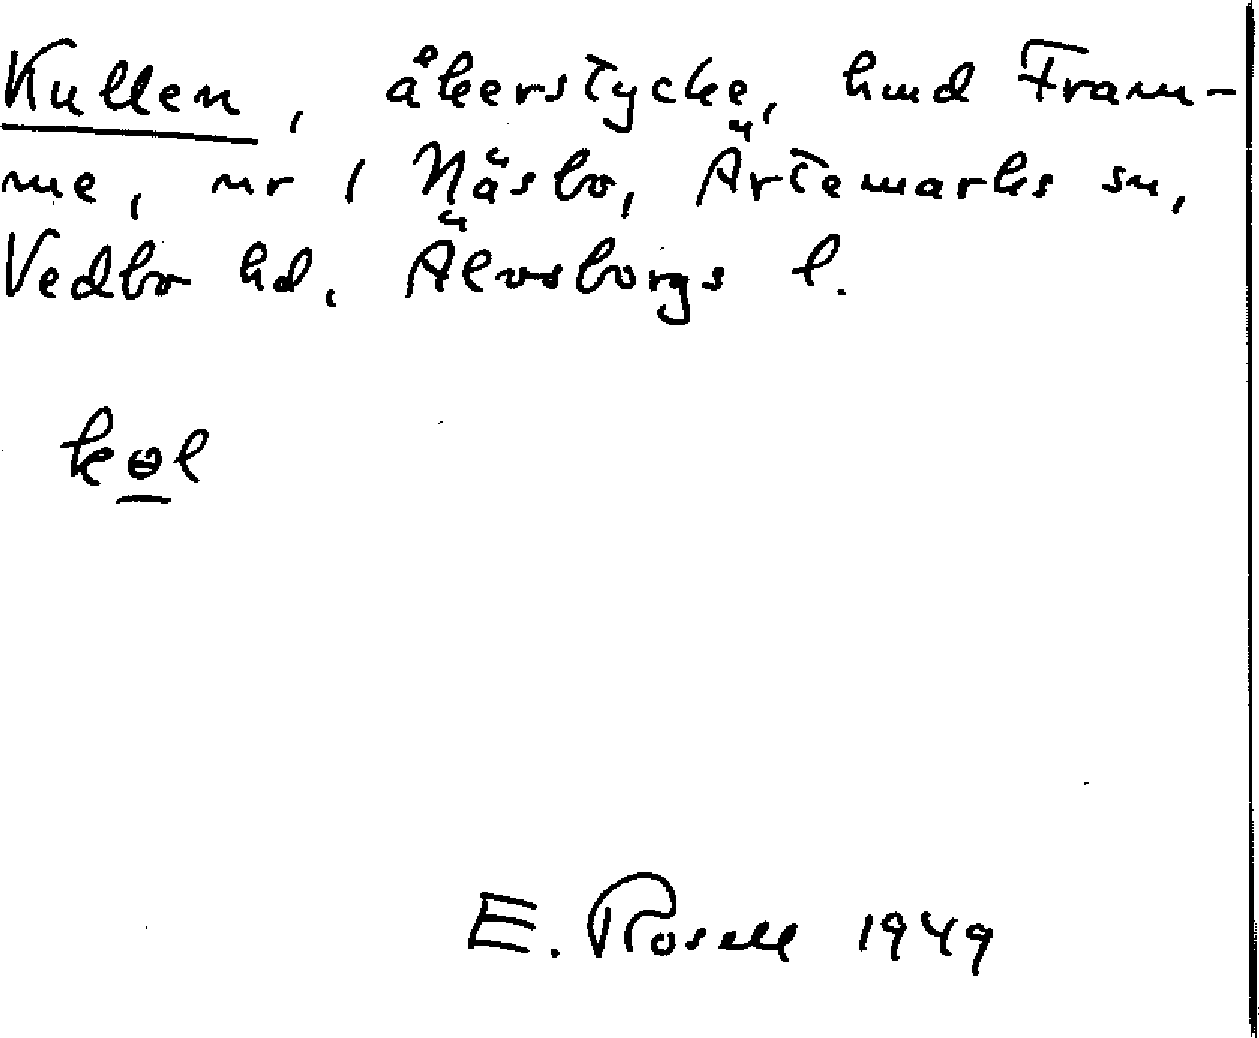 Kullen, åkerstycke, hmd Fram-
me, nr 1 Näsbo, Ärtemarks sn,
Vedbo hd. Älvsborgs l.
kɵl
E. Rosell 1949